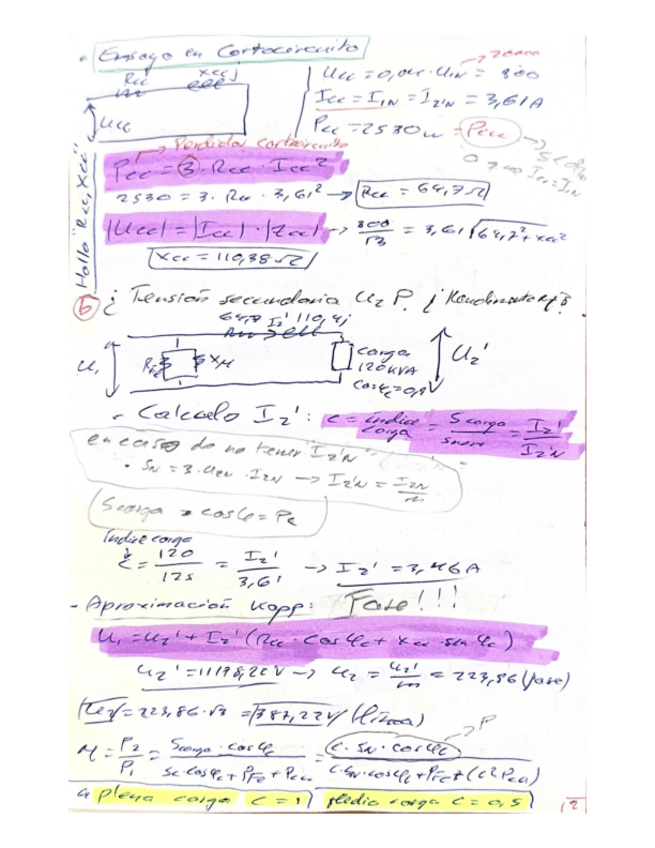 • Ensayo en Cortocircuito
→ 20000
Rcc Xccj
Ucc = 0,04 · U1N = 800
Icc = I1N = I2'N = 3,61 A
Ucc
Pcc = 2530 W = Pcu
→ Pérdidas cortocircuito
Icc = I1N
Pcc = 3 · Rcc · Icc²
2530 = 3 · Rcc · 3,61² → Rcc = 64,7 Ω
|Ucc| = |Icc| · |Zcc| → 800/√3 = 3,61 √64,7² + Xcc²
Xcc = 110,38 Ω
Hallo "Rcc, Xcc"
b) ¿Tensión secundaria U2 P. y Rendimiento
64,7 I2' 110,4j
U1
RFe Xμ
carga
120 KVA
cosφc = 0,9
U2'
- Calculo I2': c = índice carga = Scarga/Snom = I2'/I2'N
en caso de no tener I2'N
• SN = 3 · U2N · I2N → I2'N = I2N/m
Scarga · cosφ = Pc
Índice carga
c = 120/125 = I2'/3,61 → I2' = 3,46 A
- Aproximación Kapp: Fase!!!
U1 = U2' + I2' (Rcc · cosφc + Xcc · senφc)
U2' = 11198,22 V → U2 = U2'/m = 223,86 (fase)
U2 = 223,86 · √3 = 387,22 V (línea)
η = P2/P1 = Scarga · cosφc / Sc · cosφc + PFe + Pcu = c · SN · cosφc / c · SN · cosφc + PFe + (c² Pcu) → P
a plena carga c = 1 / Media carga c = 0,5
2